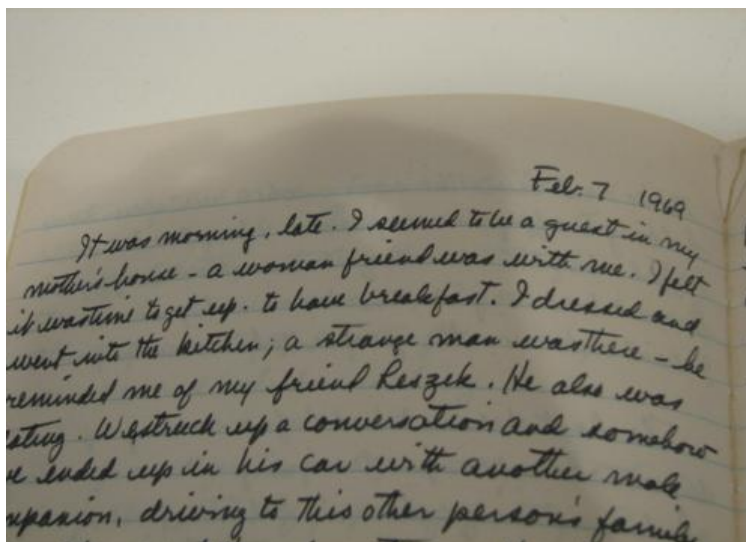 Feb. 7 1969
It was morning, late. I seemed to be a guest in my
mother's house - a woman friend was with me. I felt
it was time to get up. to have breakfast. I dressed and
went into the kitchen; a strange man was there - he
reminded me of my friend Leszek. He also was
eating. We struck up a conversation and somehow
we ended up in his car with another male
companion, driving to this other person's family